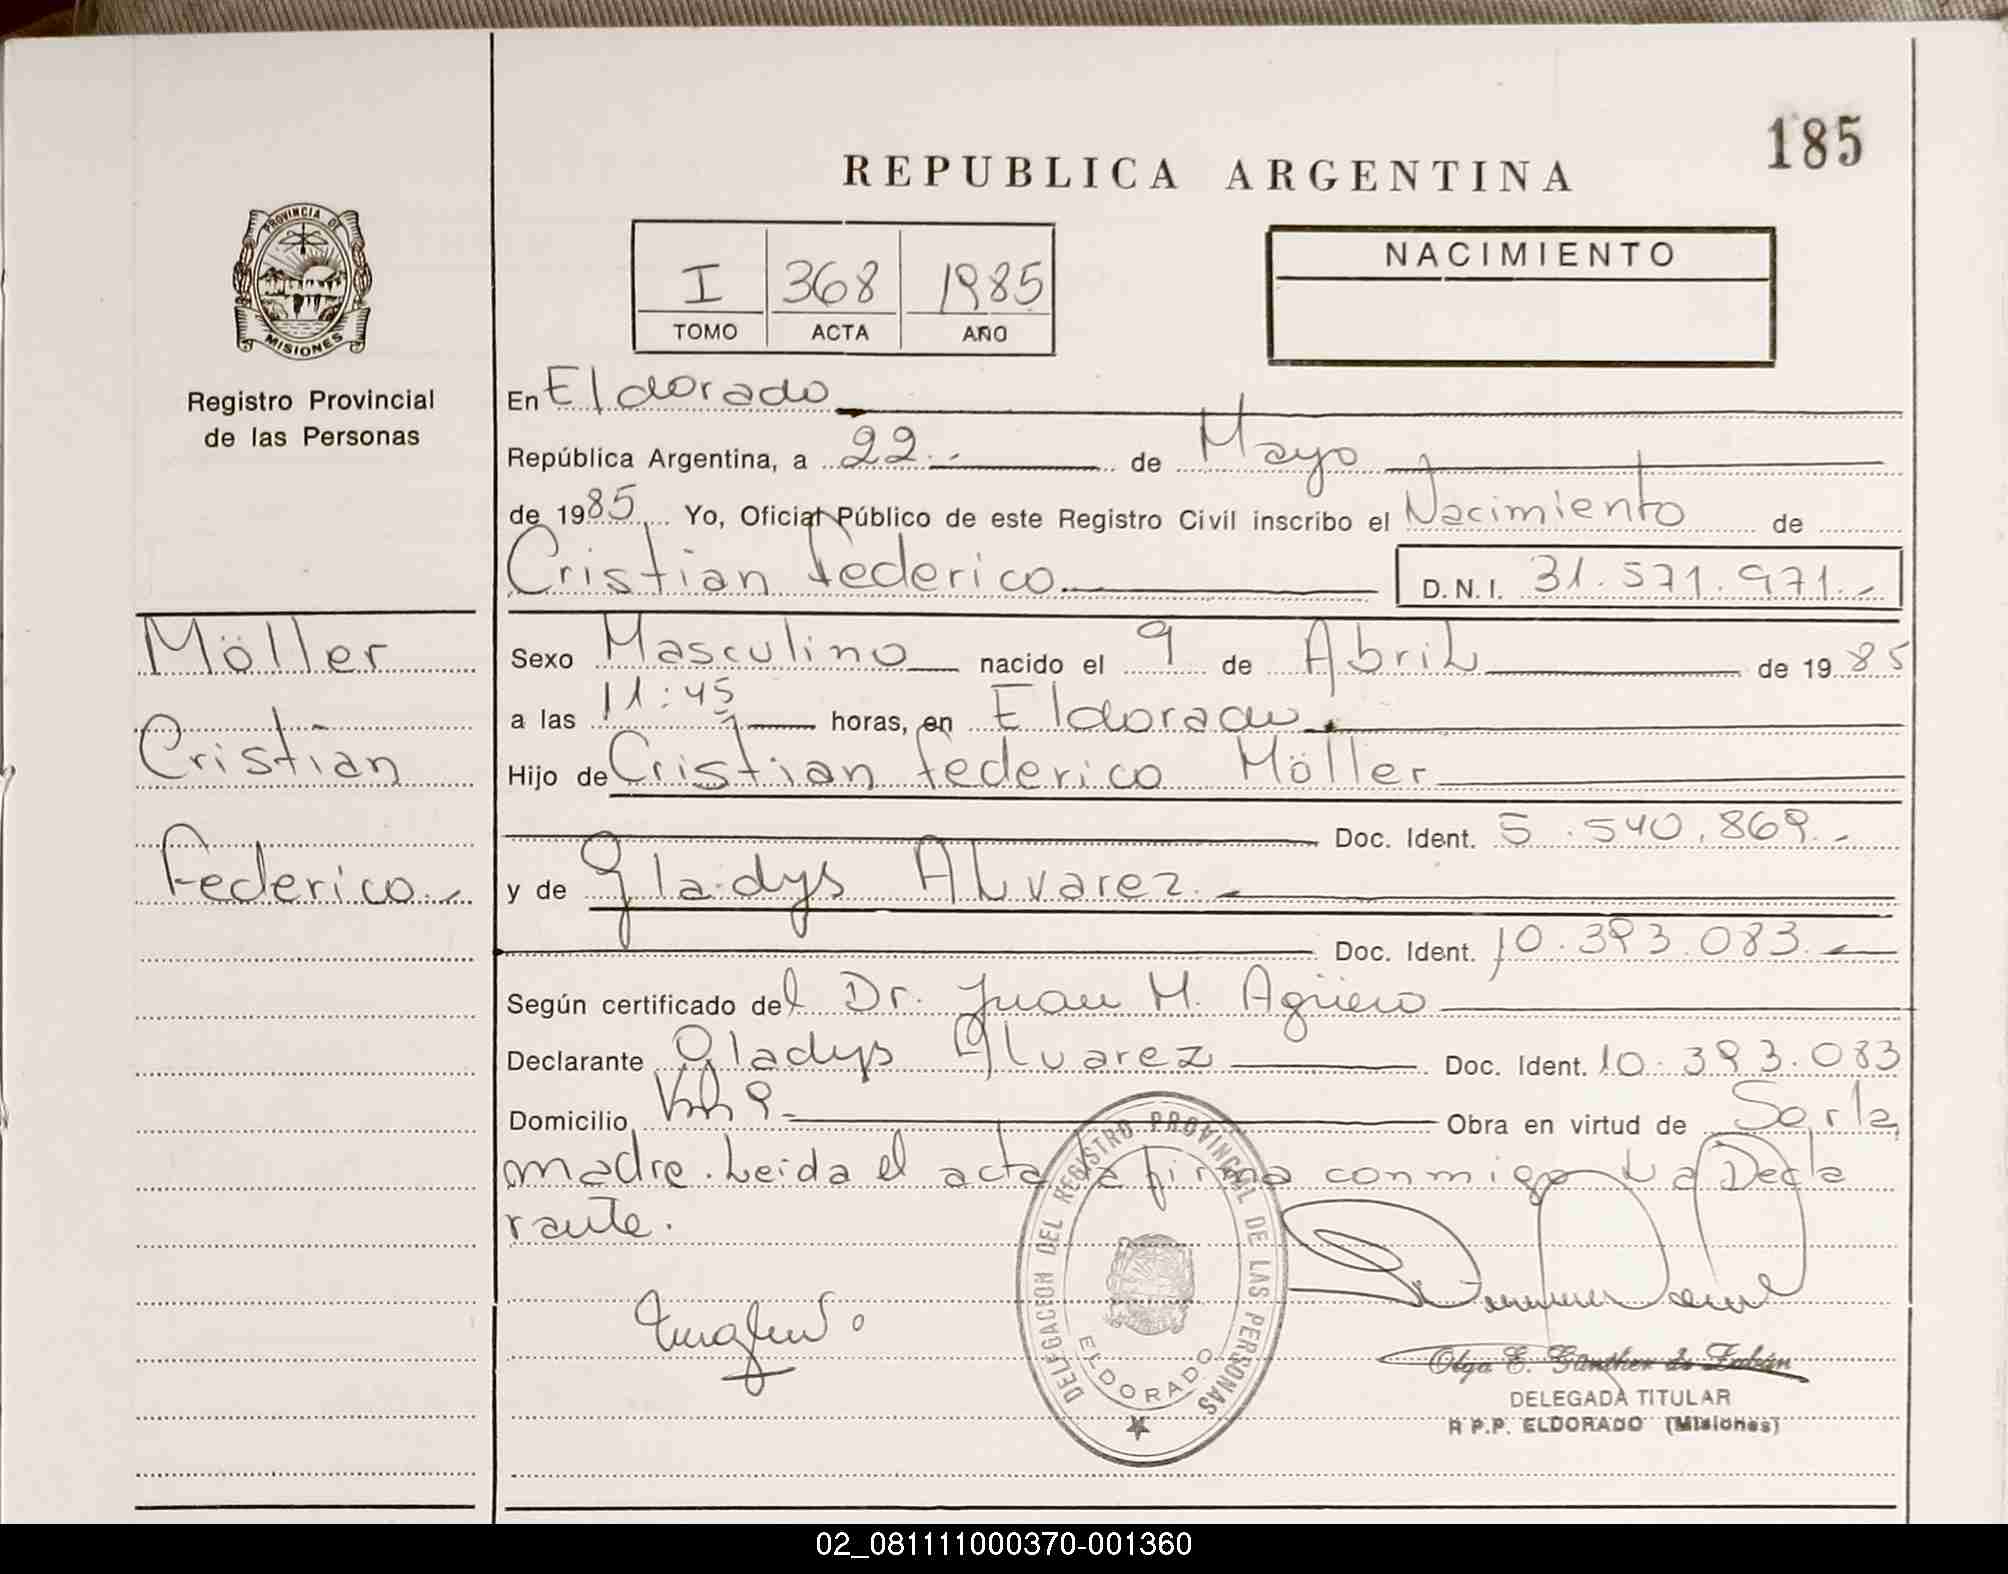 185
REPUBLICA ARGENTINA
PROVINCIA DE
MISIONES
Registro Provincial
de las Personas
I 368 1985
TOMO ACTA AÑO
NACIMIENTO
En Eldorado
República Argentina, a 22.- de Mayo
de 1985 Yo, Oficial Público de este Registro Civil inscribo el Nacimiento de
Cristian Federico D.N.I. 31.571.971.-
Möller
Cristian
Federico.-
Sexo Masculino nacido el 9 de Abril de 1985
a las 11:45 horas, en Eldorado.
Hijo de Cristian Federico Möller
Doc. Ident. 5.540.869.-
y de Gladys Alvarez.-
Doc. Ident. 10.393.083.-
Según certificado del Dr. Juan M. Agüero
Declarante Gladys Alvarez Doc. Ident. 10.393.083
Domicilio Km 9.- Obra en virtud de Ser la
madre. Leida el acta la firma conmigo La Decla
rante.
DELEGACION DEL REGISTRO PROVINCIAL DE LAS PERSONAS
ELDORADO
Olga E. Günther de Fabián
DELEGADA TITULAR
R.P.P. ELDORADO (Misiones)
02_081111000370-001360